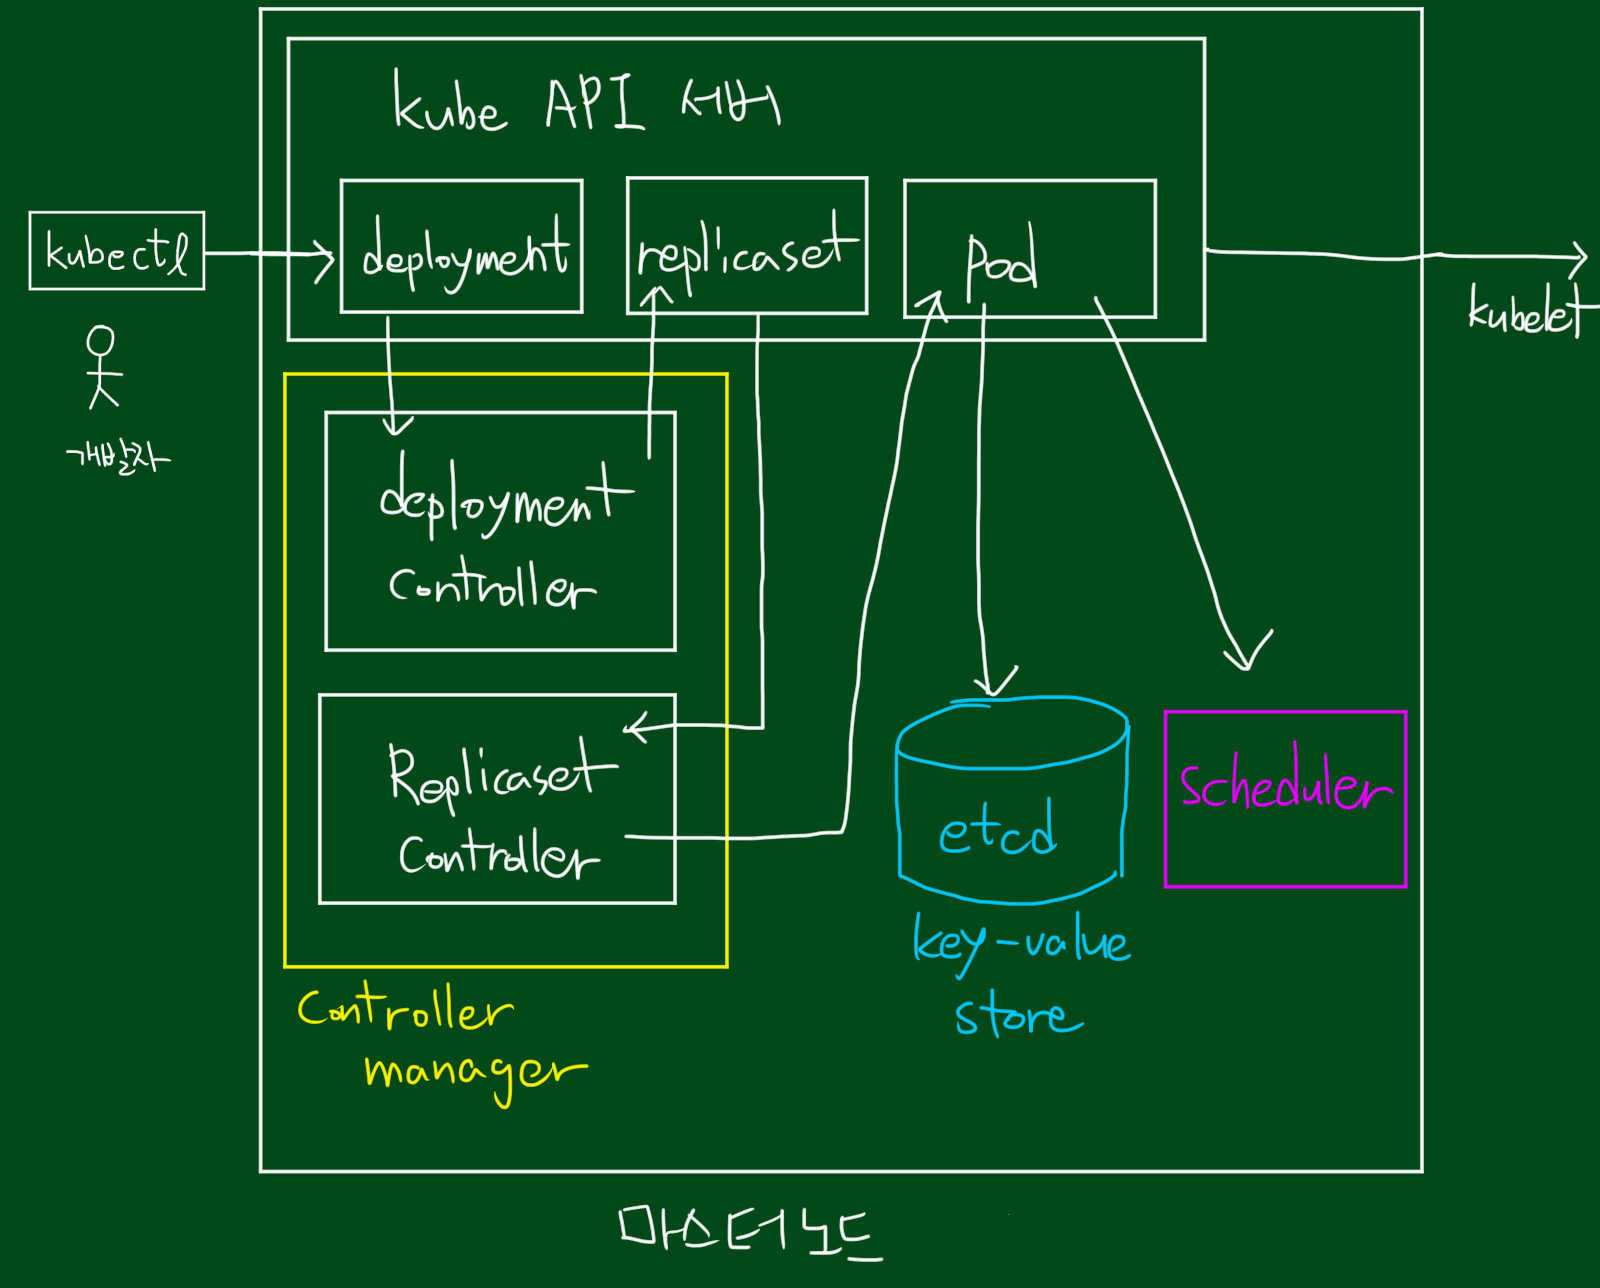 kube API 서버
deployment
replicaset
pod
kubectl
kubelet
개발자
deployment
controller
Replicaset
Controller
Controller
manager
etcd
key-value
store
scheduler
마스터노드